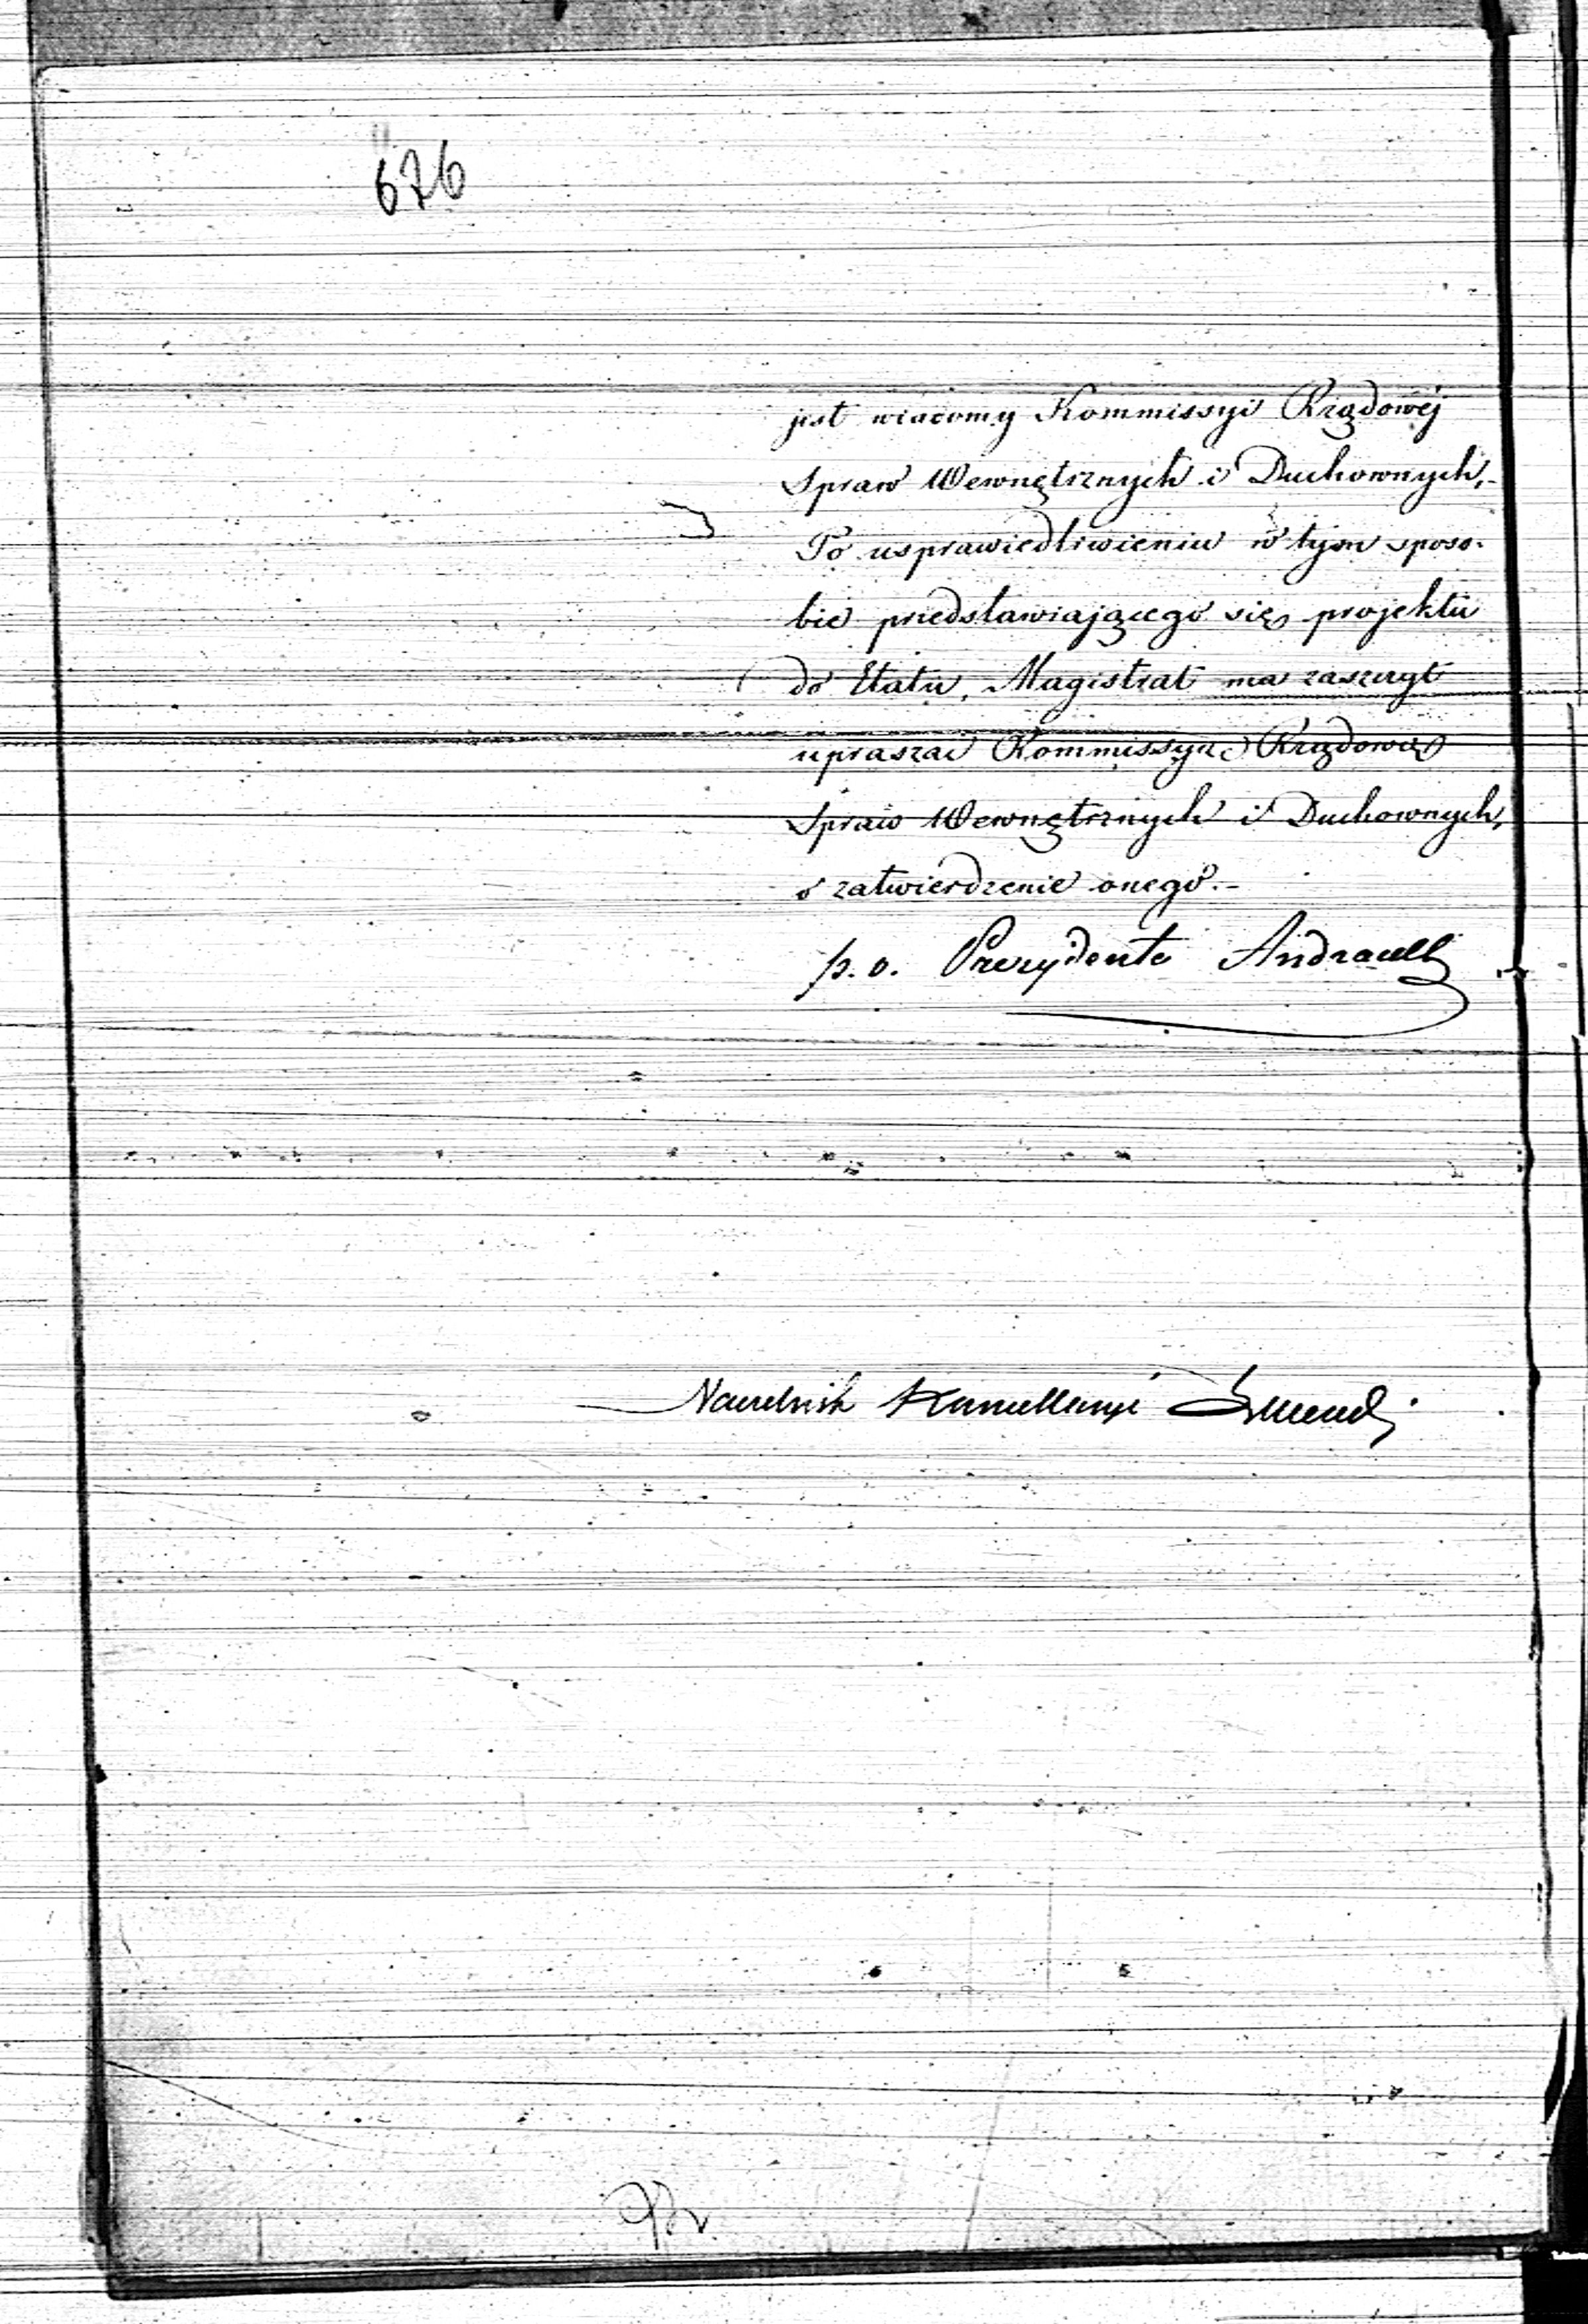 676
jest wiadomy Kommissyi Rządowéj
Spraw Wewnętrznych i Duchownych,-
Po usprawiedliwieniu w tym sposo-
bie przedstawiającego się projektu
do Etatu, Magistrat ma zaszczyt
upraszać Kommissyą Rządową
Spraw Wewnętrznych i Duchownych,
o zatwierdzenie onego.-
p. o. Prezydenta Andrault
Naczelnik Kancellaryi